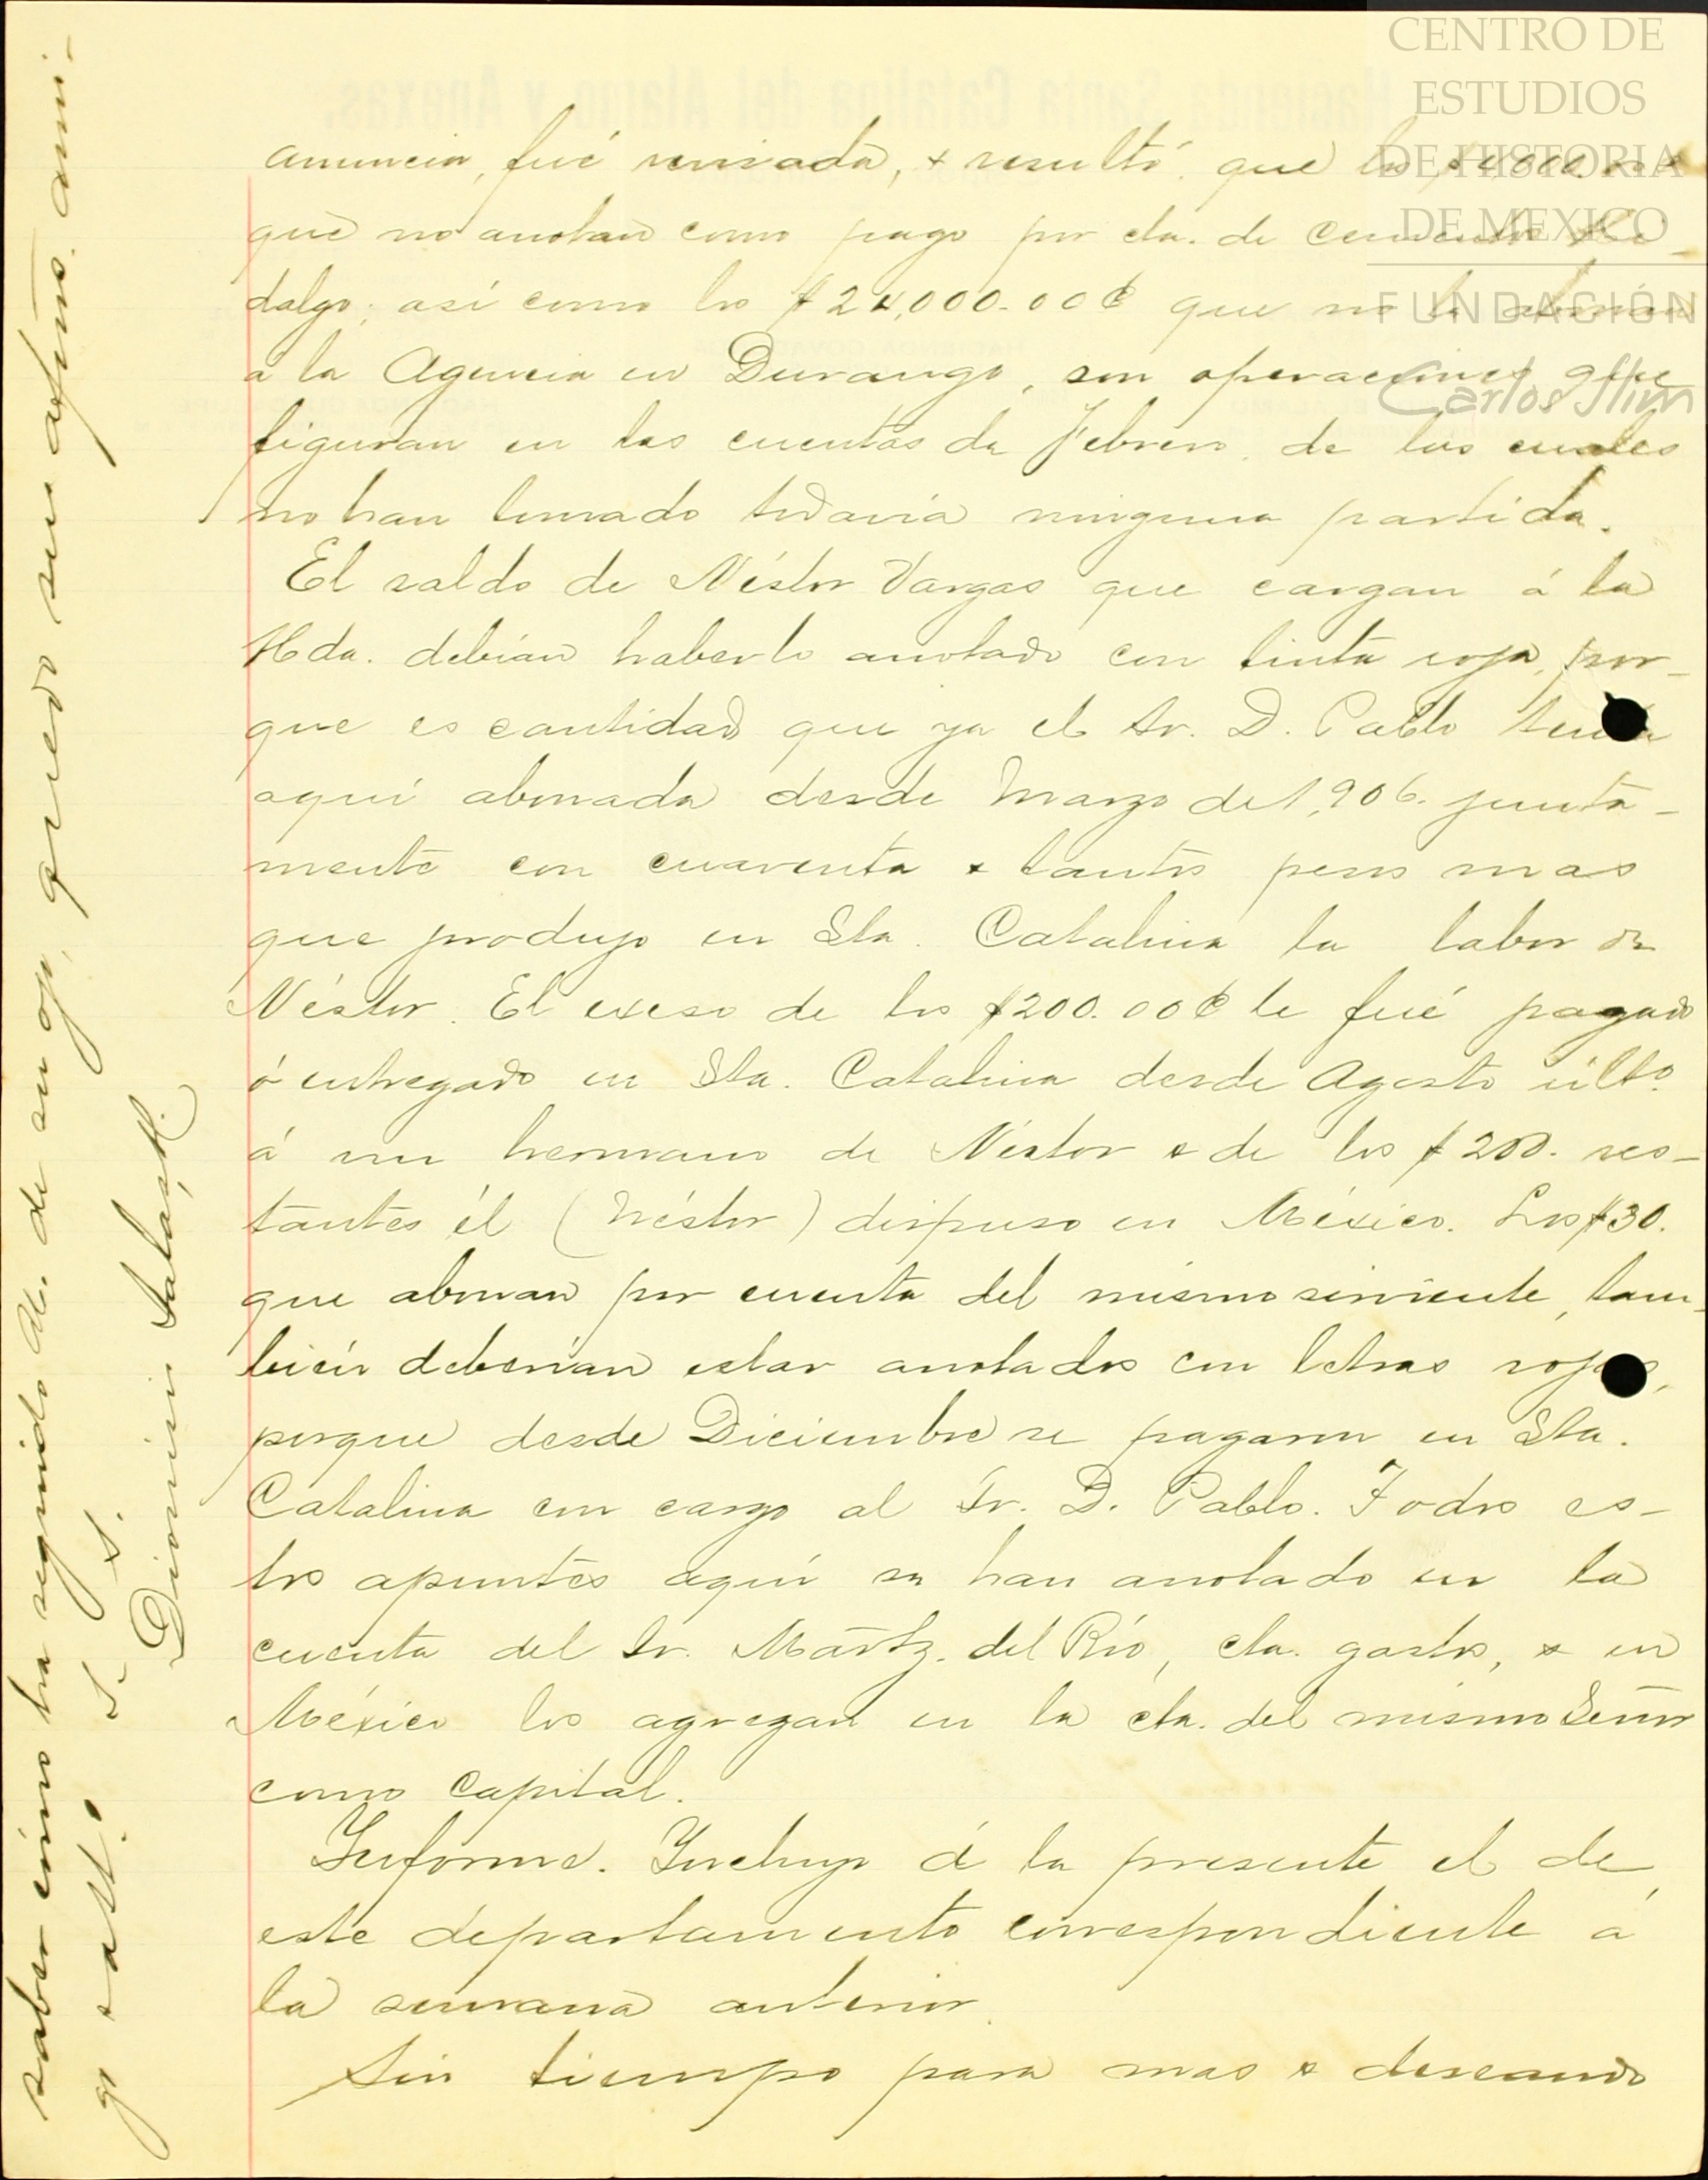 CENTRO DE
ESTUDIOS
DE HISTORIA
DE MEXICO
FUNDACIÓN
Carlos Slim
Hacienda Santa Catalina del Alamo y Anexas.
anuncia, fué revisada, & resultó que los
que no anotan como pago por cta. de Cemento Hi-
dalgo; así como los $24,000.00¢ que no le abonan
á la Agencia en Durango, son operaciones que
figuran en las cuentas de Febrero, de las cuales
no han tomado todavía ninguna partida.
El saldo de Néstor Vargas que cargan á la
Hda. debían haberlo anotado con tinta roja, por-
que es cantidad que ya el Sr. D. Pablo tenía
aquí abonada desde Marzo de 1,906. junta-
mente con cuarenta & tantos pesos mas
que produjo en Sta. Catalina la labor de
Néstor. El exeso de los $200.00¢ le fué pagado
ó entregado en Sta. Catalina desde Agosto últo.
á un hermano de Néstor & de los $200. res-
tantes él (Néstor) dispuso en México. Los $30.
que abonan por cuenta del mismo sirviente, tam-
bién deberían estar anotados con letras rojas,
porque desde Diciembre se pagaron en Sta.
Catalina con cargo al Sr. D. Pablo. Todos es-
tos apuntes aquí se han anotado en la
cuenta del Sr. Martz. del Río, cta. gastos, & en
México los agregan en la cta. del mismo Señor
como Capital.
Informe. Incluyo á la presente el de
este departamento correspondiente á
la semana anterior.
Sin tiempo para mas & deseando
saber cómo ha seguido Ud. de su ojo, quedo su afmo. ami-
go & atto. S. S.
Dionisio Salas, H.